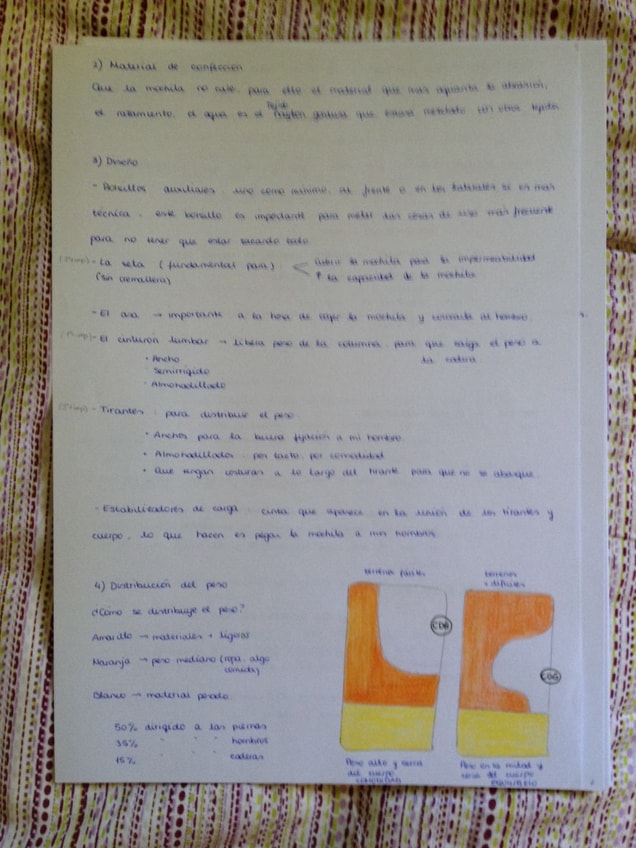 2) Material de confección
Que la mochila no cale, para ello el material que más aguanta la abrasión,
el rozamiento, el agua es el tejido que estará mezclado con otros tejidos
3) Diseño
- Bolsillos auxiliares: uno como mínimo, al frente o en los laterales si es más
técnica, este bolsillo es importante para meter las cosas de uso más frecuente
para no tener que estar sacando todo.
- La seta (fundamental para) cubrir la mochila para la impermeabilidad
(sin cremallera) ↑ la capacidad de la mochila
- El asa → importante a la hora de coger la mochila y colocarla al hombro.
- El cinturón lumbar → libera peso de la columna para que caiga el peso a
la cadera.
• Ancho
• Semirrígido
• Almohadillado
- Tirantes: para distribuir el peso
• Anchos para la buena fijación a mi hombro.
• Almohadillados: por tacto, por comodidad
• Que tengan costuras a lo largo del tirante para que no se abarque.
- Estabilizadores de carga: cinta que aparece en la unión de los tirantes y
cuerpo, lo que hacen es pegar la mochila a mis hombros
4) Distribución del peso
¿Cómo se distribuye el peso?
Amarillo → materiales + ligeros
Naranja → peso mediano (ropa, algo
comida)
Blanco → material pesado.
50% dirigido a las piernas
35% " " " hombros
15% " " " caderas
terrenos fáciles
CDG
Peso alto y cerca
del cuerpo
terrenos
+ difíciles
CDG
Peso en la mitad y
cerca del cuerpo